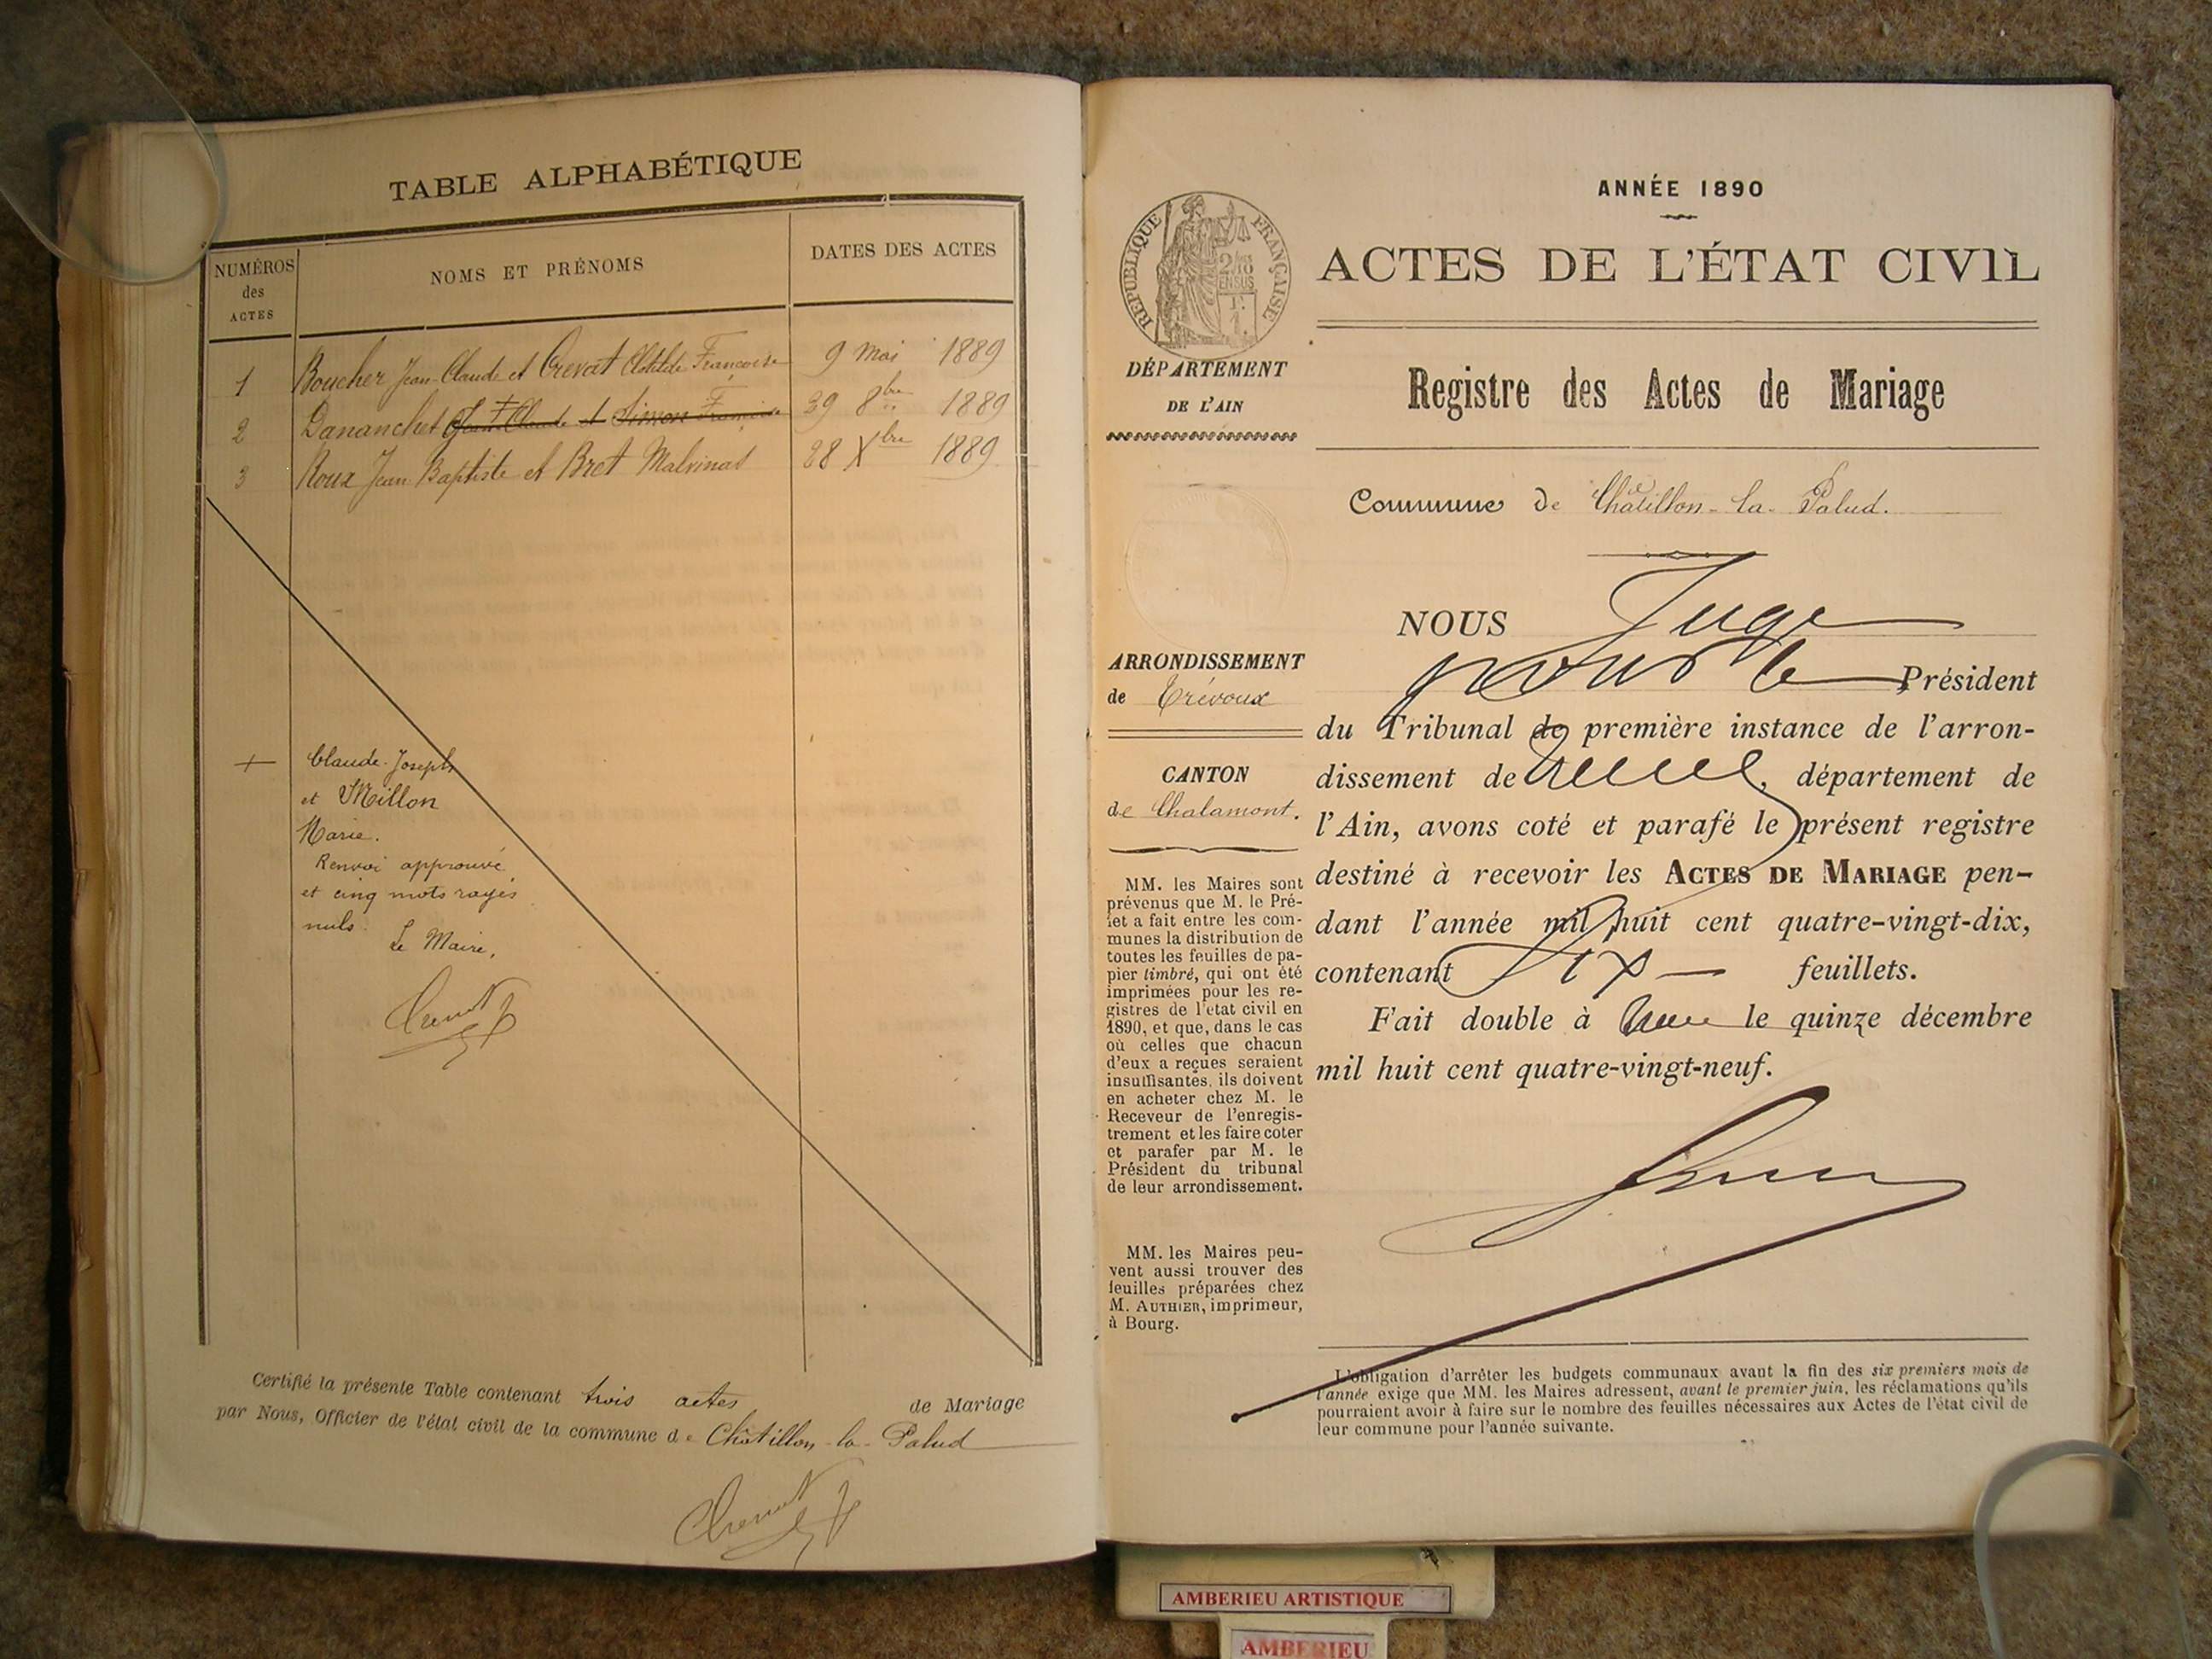 TABLE ALPHABÉTIQUE
NUMÉROS
des
ACTES
NOMS ET PRÉNOMS
DATES DES ACTES
1 Boucher Jean-Claude et Crevat Clotilde Françoise 9 Mai 1889
2 Dananchet Jean Claude et Simon Françoise 39 8bre 1889
3 Roux Jean Baptiste et Bret Malvinat 28 Xbre 1889
+ Claude-Joseph
et Millon
Marie.
Renvoi approuvé
et cinq mots rayés
nuls.
Le Maire,
Certifié la présente Table contenant trois actes de Mariage
par Nous, Officier de l'état civil de la commune de Châtillon-la-Palud
RÉPUBLIQUE FRANÇAISE
DÉPARTEMENT
DE L'AIN
ARRONDISSEMENT
de Trévoux
CANTON
de Chalamont.
MM. les Maires sont
prévenus que M. le Pré-
fet a fait entre les com-
munes la distribution de
toutes les feuilles de pa-
pier timbré, qui ont été
imprimées pour les re-
gistres de l'état civil en
1890, et que, dans le cas
où celles que chacun
d'eux a reçues seraient
insuffisantes, ils doivent
en acheter chez M. le
Receveur de l'enregis-
trement et les faire coter
et parafer par M. le
Président du tribunal
de leur arrondissement.
MM. les Maires peu-
vent aussi trouver des
feuilles préparées chez
M. AUTHIER, imprimeur,
à Bourg.
ANNÉE 1890
ACTES DE L'ÉTAT CIVIL
Registre des Actes de Mariage
Commune de Châtillon-la-Palud.
NOUS Juge
pour le Président
du Tribunal de première instance de l'arron-
dissement de, département de
l'Ain, avons coté et parafé le présent registre
destiné à recevoir les ACTES DE MARIAGE pen-
dant l'année mil huit cent quatre-vingt-dix,
contenant Six feuillets.
Fait double à le quinze décembre
mil huit cent quatre-vingt-neuf.
L'obligation d'arrêter les budgets communaux avant la fin des six premiers mois de
l'année exige que MM. les Maires adressent, avant le premier juin, les réclamations qu'ils
pourraient avoir à faire sur le nombre des feuilles nécessaires aux Actes de l'état civil de
leur commune pour l'année suivante.
AMBERIEU ARTISTIQUE
AMBERIEU